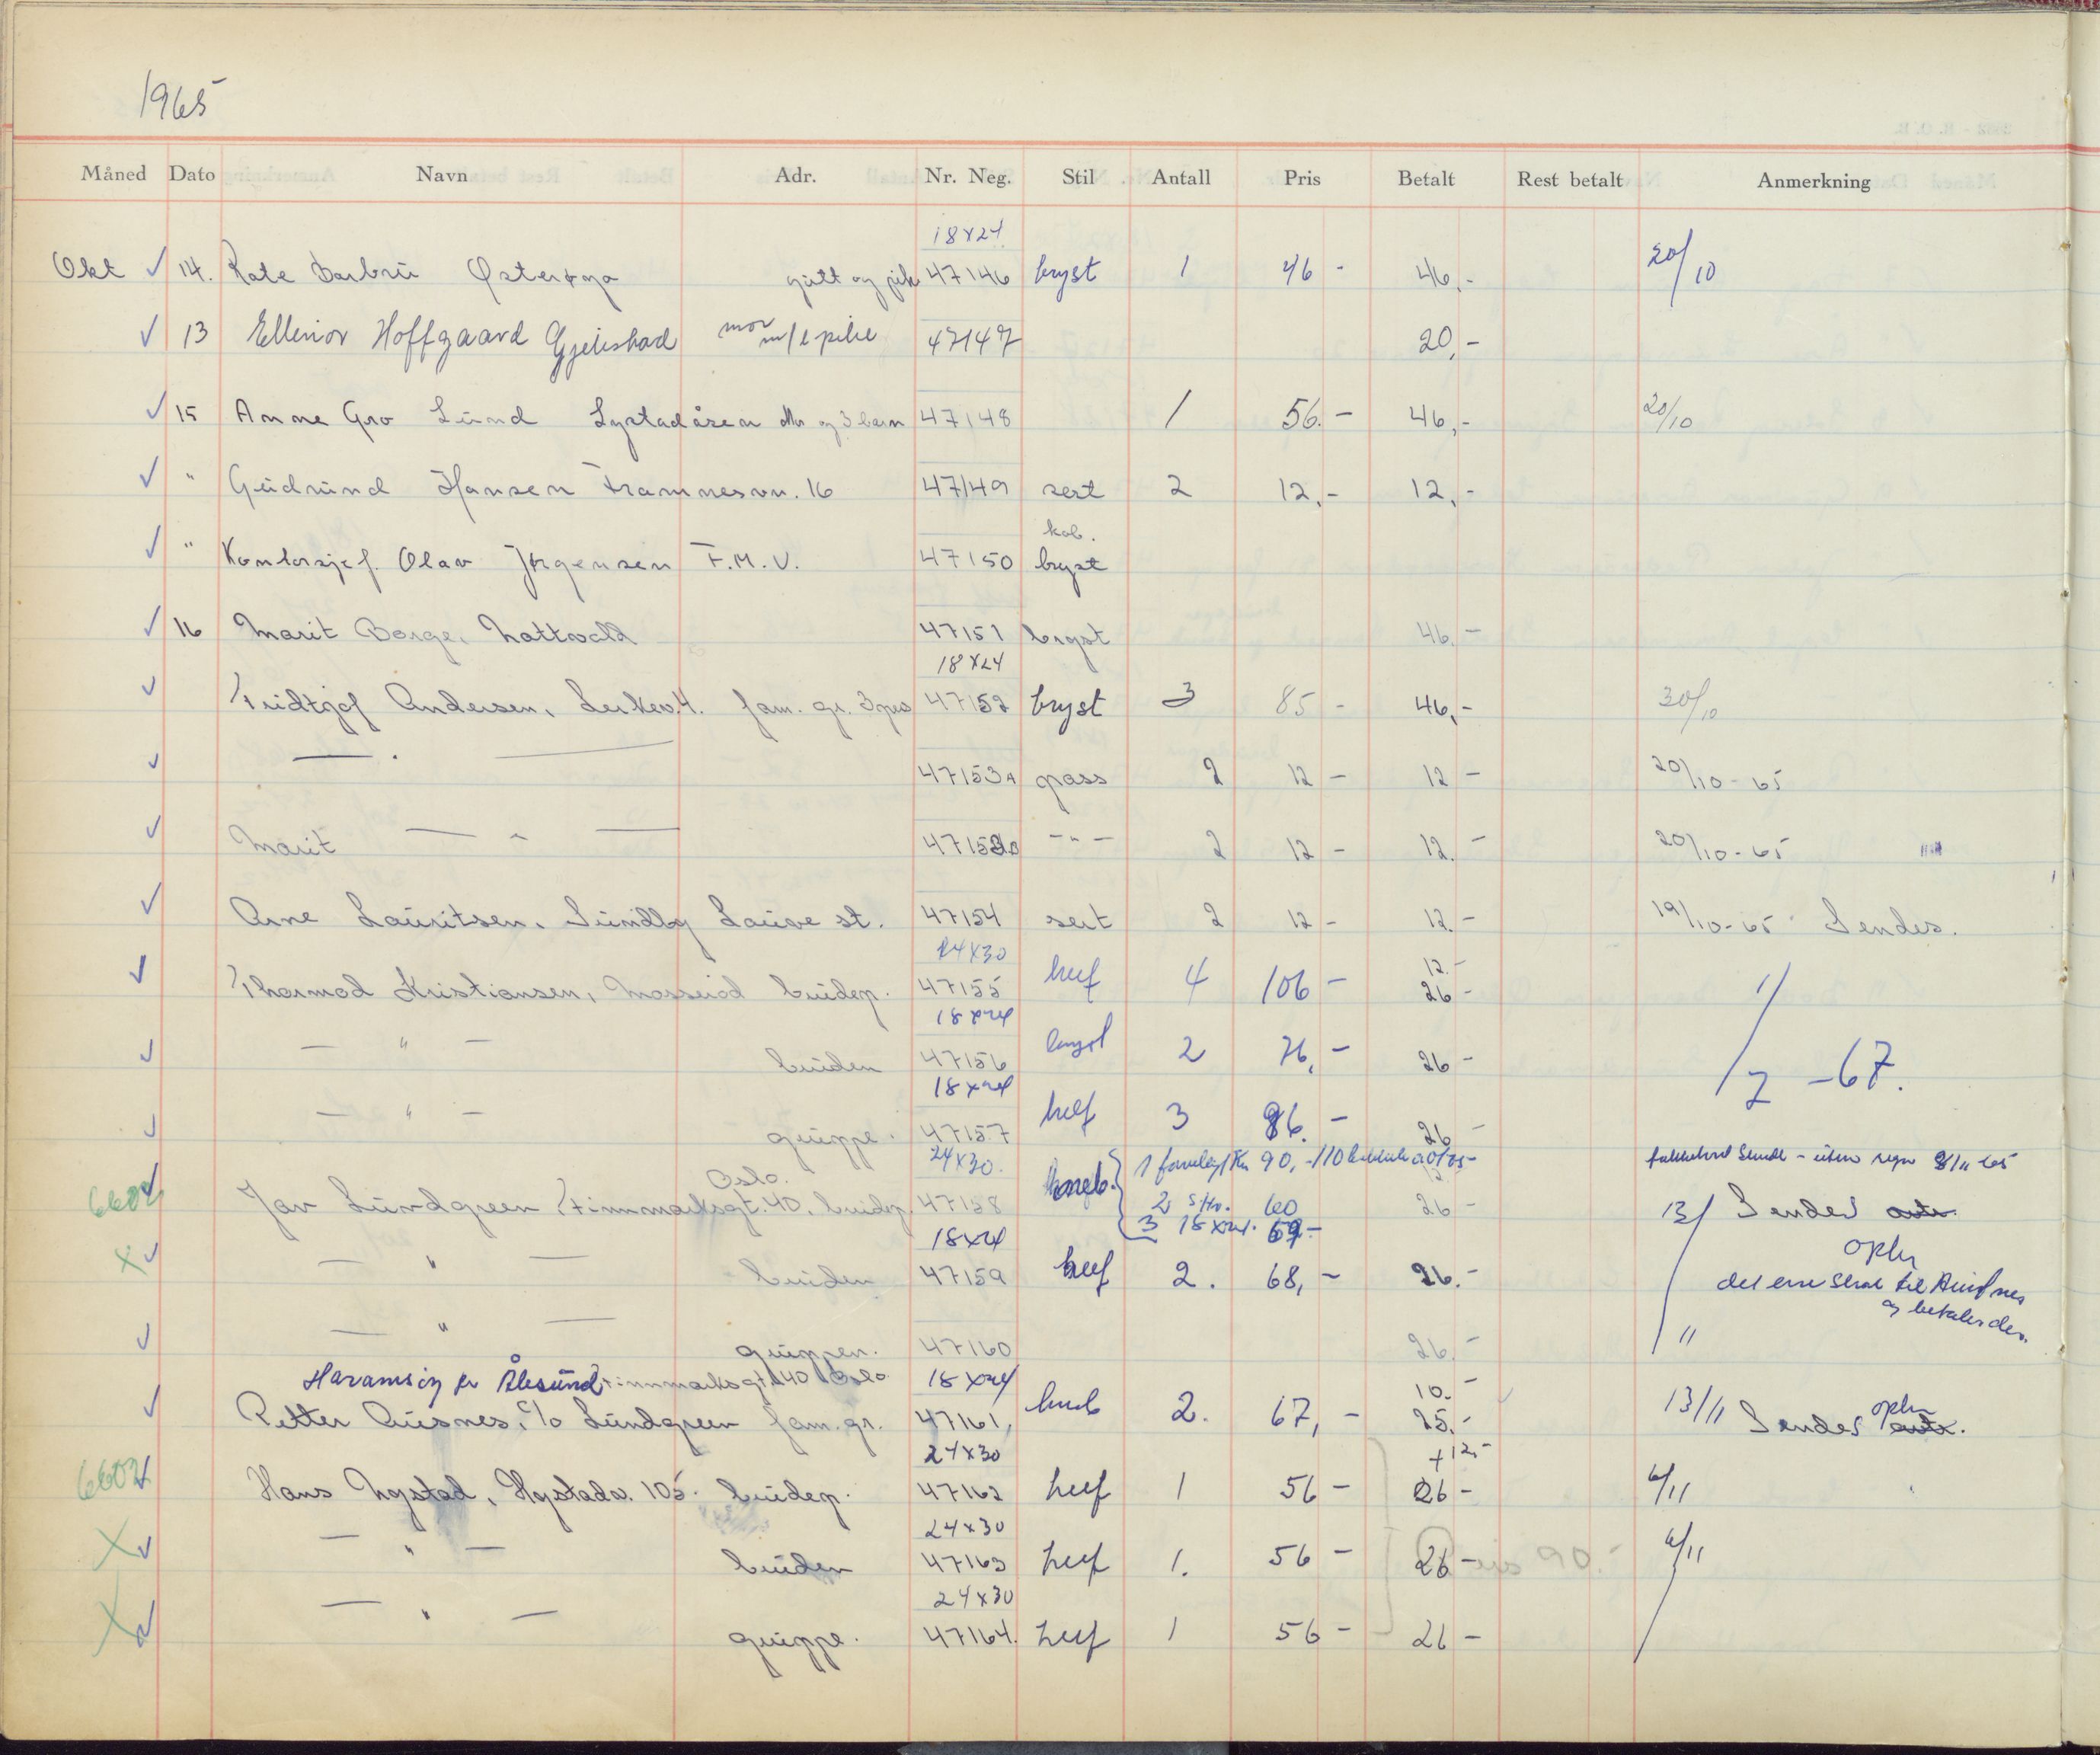 1965
Måned Dato Navn Adr. Nr. Neg. Stil Antall Pris Betalt Rest betalt Anmerkning
18x24
Okt 14. Kate Østerøya gutt og pike 47146 bryst 1 46 - 46,- 20/10
13 Ellinor Hoffgaard mor m/1 pike 47147 20,-
15 Anne Gro Lund Lystadåsen Mor og 3 barn 47148 1 56.- 46,- 20/10
" Gudrund Hansen Framnesvn. 16 47149 sert 2 12,- 12,-
kab.
" Kontorsjef. Olav Jørgensen F.M.V. 47150 bryst
16 Marit Borge, 47151 bryst 46.-
18x24
Fridtjof Andersen, 4. fam. gr. 3 pers 47152 bryst 3 85 - 46,- 30/10
— . — 47153A pass 2 12 - 12 - 20/10-65
Marit — " — 47153B -"- 2 12 - 12.- 20/10-65
Arne Lauritsen, Sundby Lauve st. 47154 sert 2 12 - 12.- 19/10-65 Sendes.
24x30 12.-
Thormod Kristiansen, brudep. 47155 heef 4 106 - 26 - 1/2 -67.
18x24
— " — bruden 47156 bryst 2 76,- 26 -
18x24
— " — gruppe. 47157 heef 3 86.- 26 -
24x30. 1 Kr 90,- 8/11 65
6602 Oslo.
Jan Lundgreen Finnmarksgt. 40, brudep. 47158 2 stk. 60 26 - 13/ Sendes
3 18x24. 69-
18x24 opkr
x — " — bruden 47159 heef 2. 68,- 26.- det ene skal til Ausnes
og betales der.
— " — gruppen. 47160 26.- 11
Haramsøy pr Ålesund Finnmarksgt 40 Oslo 18x24 10.-
Petter Ausnes, c/o Lundgreen fam. gr. 47161, 2. 67,- 25.- 13/11 Sendes opkr
24x30 +12-
6602 Hans Nystad, 105. brudep. 47162 heef 1 56 - 26 - 6/11
24x30
X — " — bruden 47163 heef 1. 56 - 26 - 90.- 6/11
24x30
X — " — gruppe. 47164. heef 1 56 - 26 -